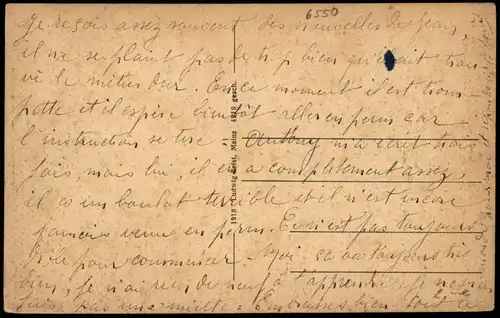 6550
Je reçois assez souvent des nouvelles de Jean,
il ne se plaint pas de trop bien qu'il ait trou
vé le métier dur. En ce moment il est trom
pette et il espère bientôt aller en perm car
l'instruction se tire = Anthony m'a écrit trois
fois, mais lui, il en a complètement assez,
il a un boulot terrible et il n'est encore
jamais venu en perm. Ce n'est pas toujours
drôle pour commencer. Moi ça va toujours très
bien, je n'ai rien de neuf à t'apprendre
pas une miette = Embrasses bien tout
1918 Ludwig Feist, Mainz 4918 gesch.